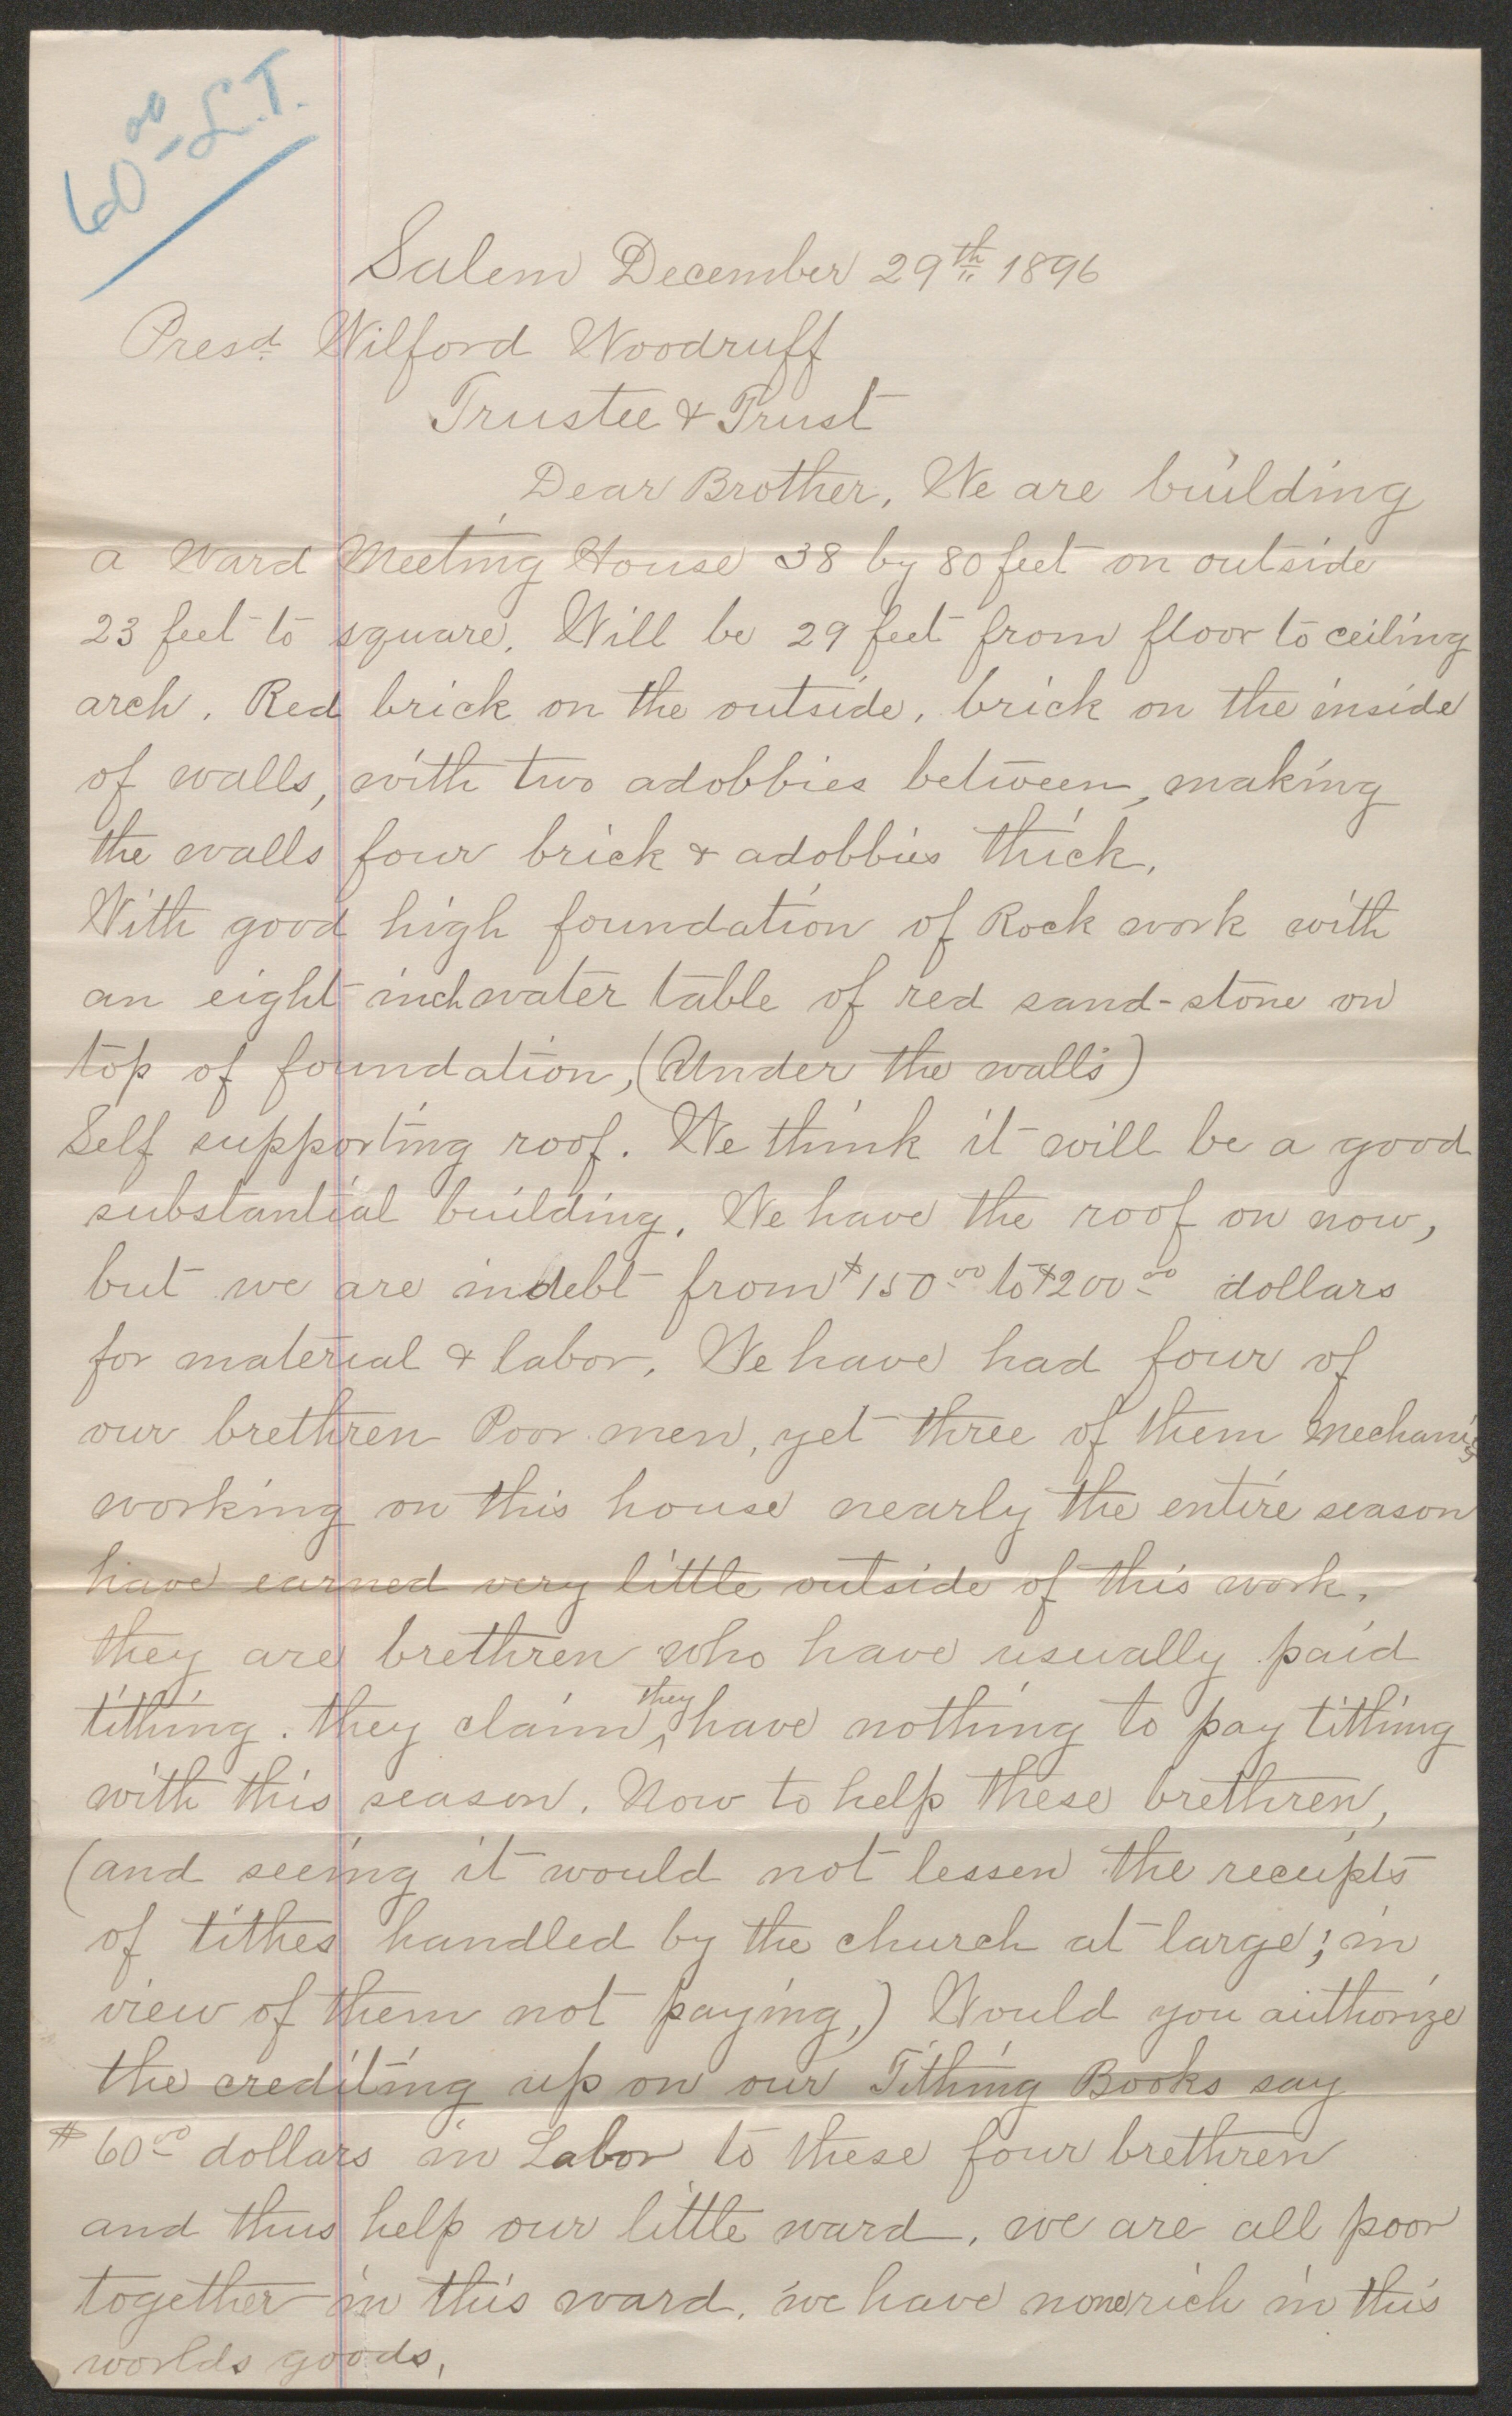 60.00 - L.T.
Salem December 29th 1896
Presd Wilford Woodruff
Trustee & Trust
Dear Brother, We are building
a Ward Meeting House 38 by 80 feet on outside
23 feet to square. Will be 29 feet from floor to ceiling
arch. Red brick on the outside, brick on the inside
of walls, with two adobbies between, making
the walls four brick & adobbies thick.
With good high foundation of Rock work with
an eight inch water table of red sand-stone on
top of foundation, (Under the walls)
Self supporting roof. We think it will be a good
substantial building. We have the roof on now,
but we are in debt from $150.00 to $200.00 dollars
for material & labor. We have had four of
our brethren Poor men, yet three of them Mechanics
working on this house nearly the entire season
have earned very little outside of this work.
they are brethren who have usually paid
tithing. they claim they have nothing to pay tithing
with this season. Now to help these brethren,
(and seeing it would not lessen the receipts
of tithes handled by the church at large; in
view of them not paying,) Would you authorize
the crediting up on our Tithing Books say
$60.00 dollars in Labor to these four brethren
and thus help our little ward. we are all poor
together in this ward. we have none rich in this
worlds goods.